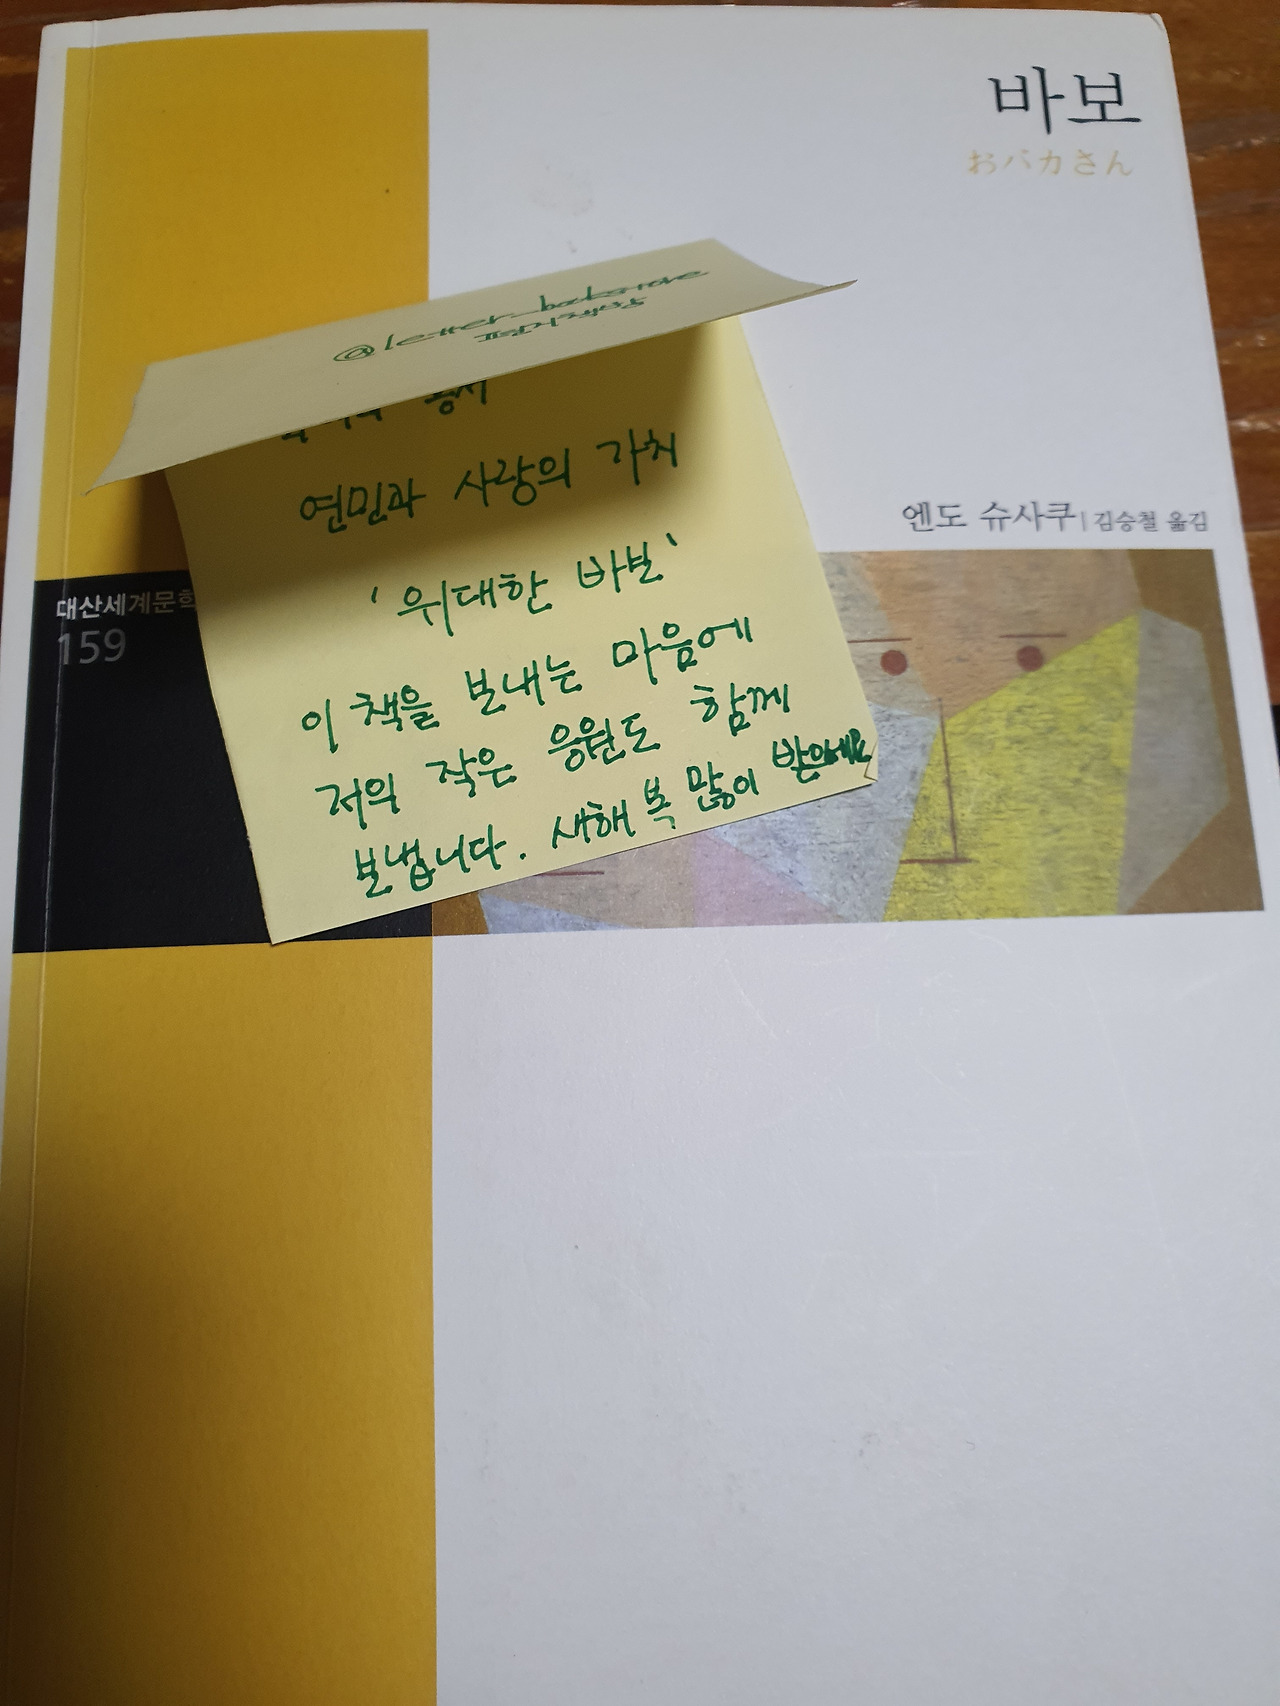 바보
おバカさん
엔도 슈사쿠 | 김승철 옮김
대산세계문학
159
연민과 사랑의 가치
'위대한 바보'
이 책을 보내는 마음에
저의 작은 응원도 함께
보냅니다. 새해 복 많이 받으세요